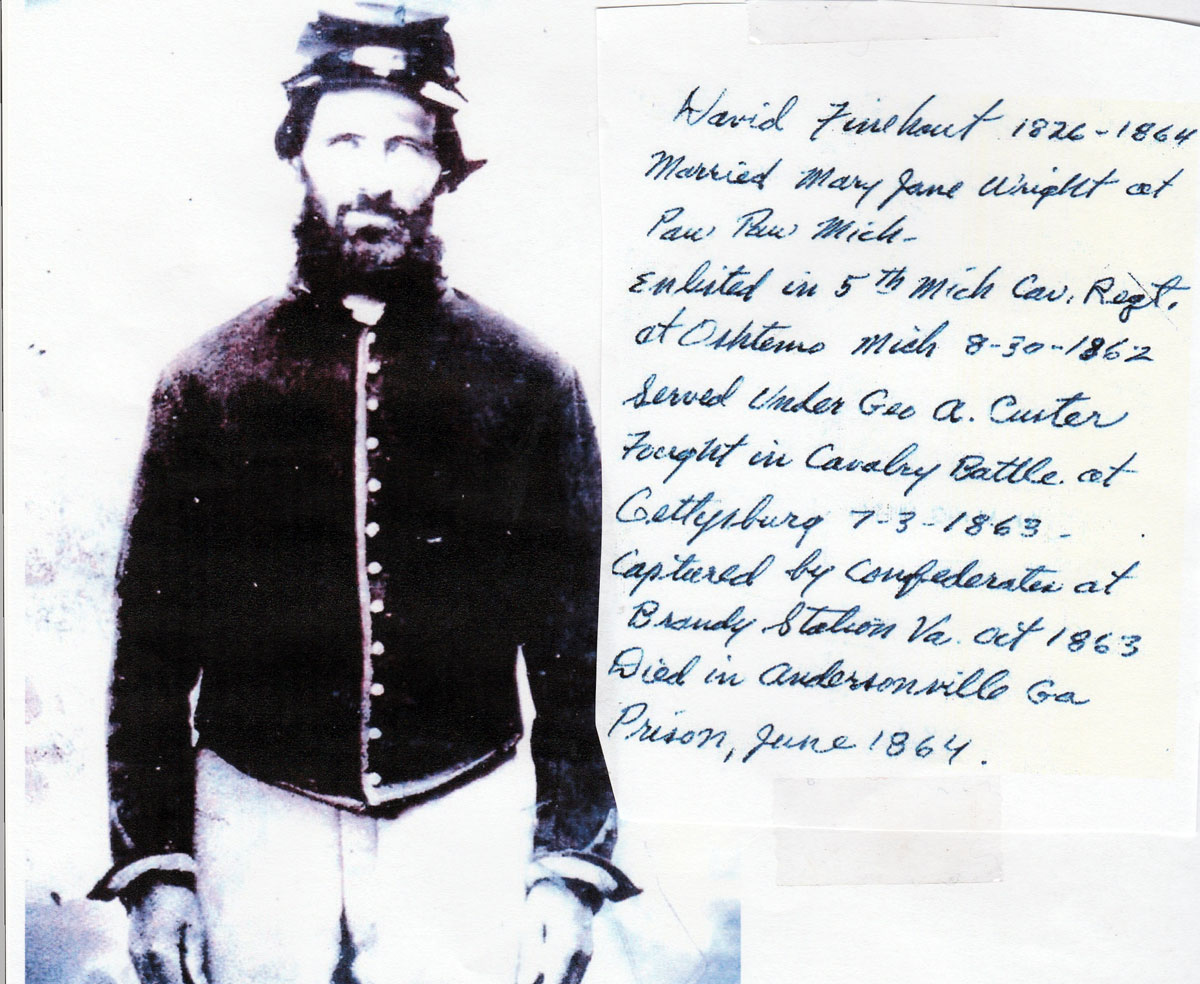 David Finehout 1826-1864
Married Mary Jane Wright at
Paw Paw Mich-
Enlisted in 5th Mich Cav. Regt.
at Oshtemo Mich 8-30-1862
Served Under Geo A. Custer
Fought in Cavalry Battle at
Gettysburg 7-3-1863-
Captured by Confederates at
Brandy Station Va. oct 1863
Died in Andersonville Ga
Prison, June 1864.